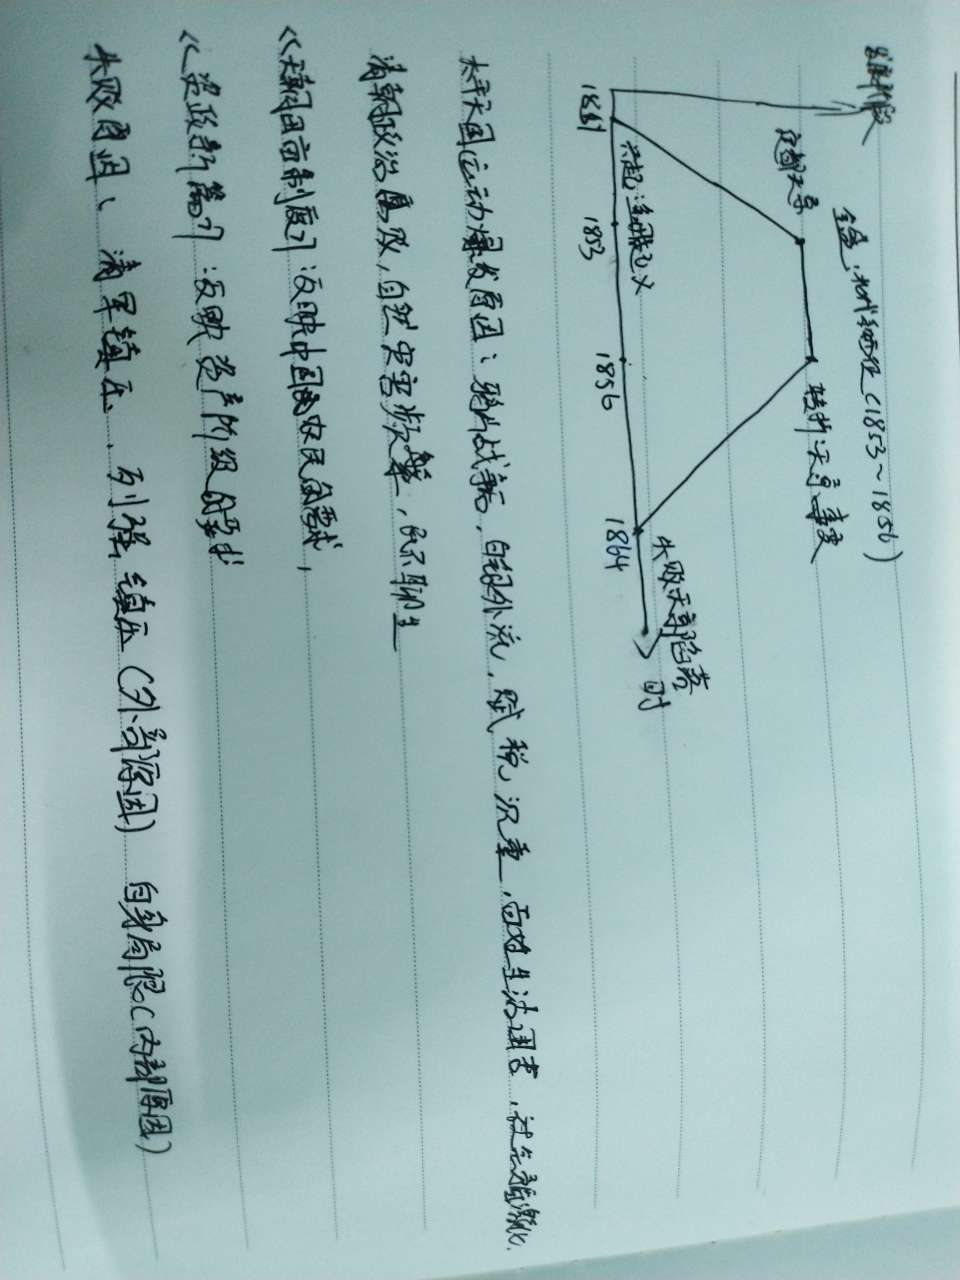 发展阶段
定都天京
全盛：北伐和西征（1853～1856）
转折：天京事变
兴起：金田起义
失败天京陷落
1851
1853
1856
1864
时
太平天国运动爆发原因：鸦片战争后，白银外流，赋税沉重，百姓生活困苦，社会矛盾激化．
清朝政治腐败，自然灾害频繁，民不聊生
《天朝田亩制度》：反映中国农民的要求，
《资政新篇》：反映资产阶级的要求
失败原因、清军镇压、列强镇压（外部原因） 自身局限（内部原因）